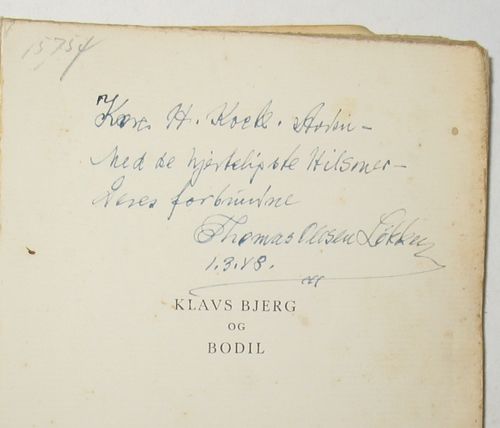 15,754
H. Koch.
Med de hjerteligste Hilsner—
Deres forbundne
Thomas Olesen Løkken
1.3.48.
KLAVS BJERG
OG
BODIL